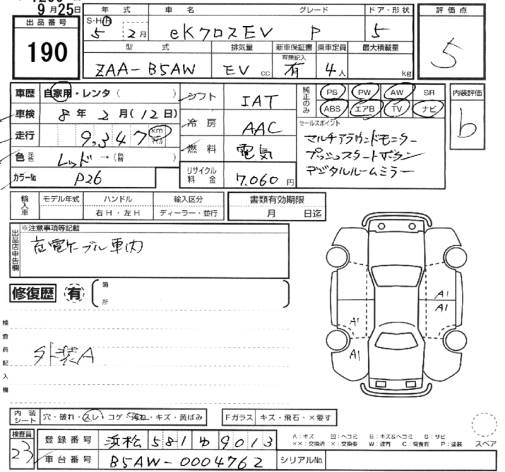 9月25日
出品番号 190
年式 車名 グレード ドア・形状 評価点
S・H・R 5年 2月 eKクロスEV P 5 5
型式 排気量 新車保証書 乗車定員 最大積載量
有無記入
ZAA-B5AW EV cc 有 4人 kg
車歴 自家用・レンタ( )
車検 8年 2月(12日)
走行 9,347 km
色 レッド→(替)
カラーNo. P26
シフト IAT
冷房 AAC
燃料 電気
リサイクル料金 7,060円
純正のみ PS PW AW SR
ABS エアB TV ナビ
内装評価 b
セールスポイント
マルチアラウンドモニター
プッシュスタートボタン
デジタルルームミラー
輸入車 モデル年式 ハンドル 輸入区分 書類有効期限
右H・左H ディーラー・並行 月 日迄
出品店申告欄 ※注意事項等記載
充電ケーブル車内
修復歴 有 箇所
検査員記入欄
外装A
A1
A1
A1
A1
内装シート 穴・破れ・スレ・コゲ・汚れ・キズ・黄ばみ
Fガラス キズ・飛石・×要す
検査員 23
登録番号 浜松 581 ゆ 9013
車台番号 B5AW-0004762 シリアルNo.
スペア